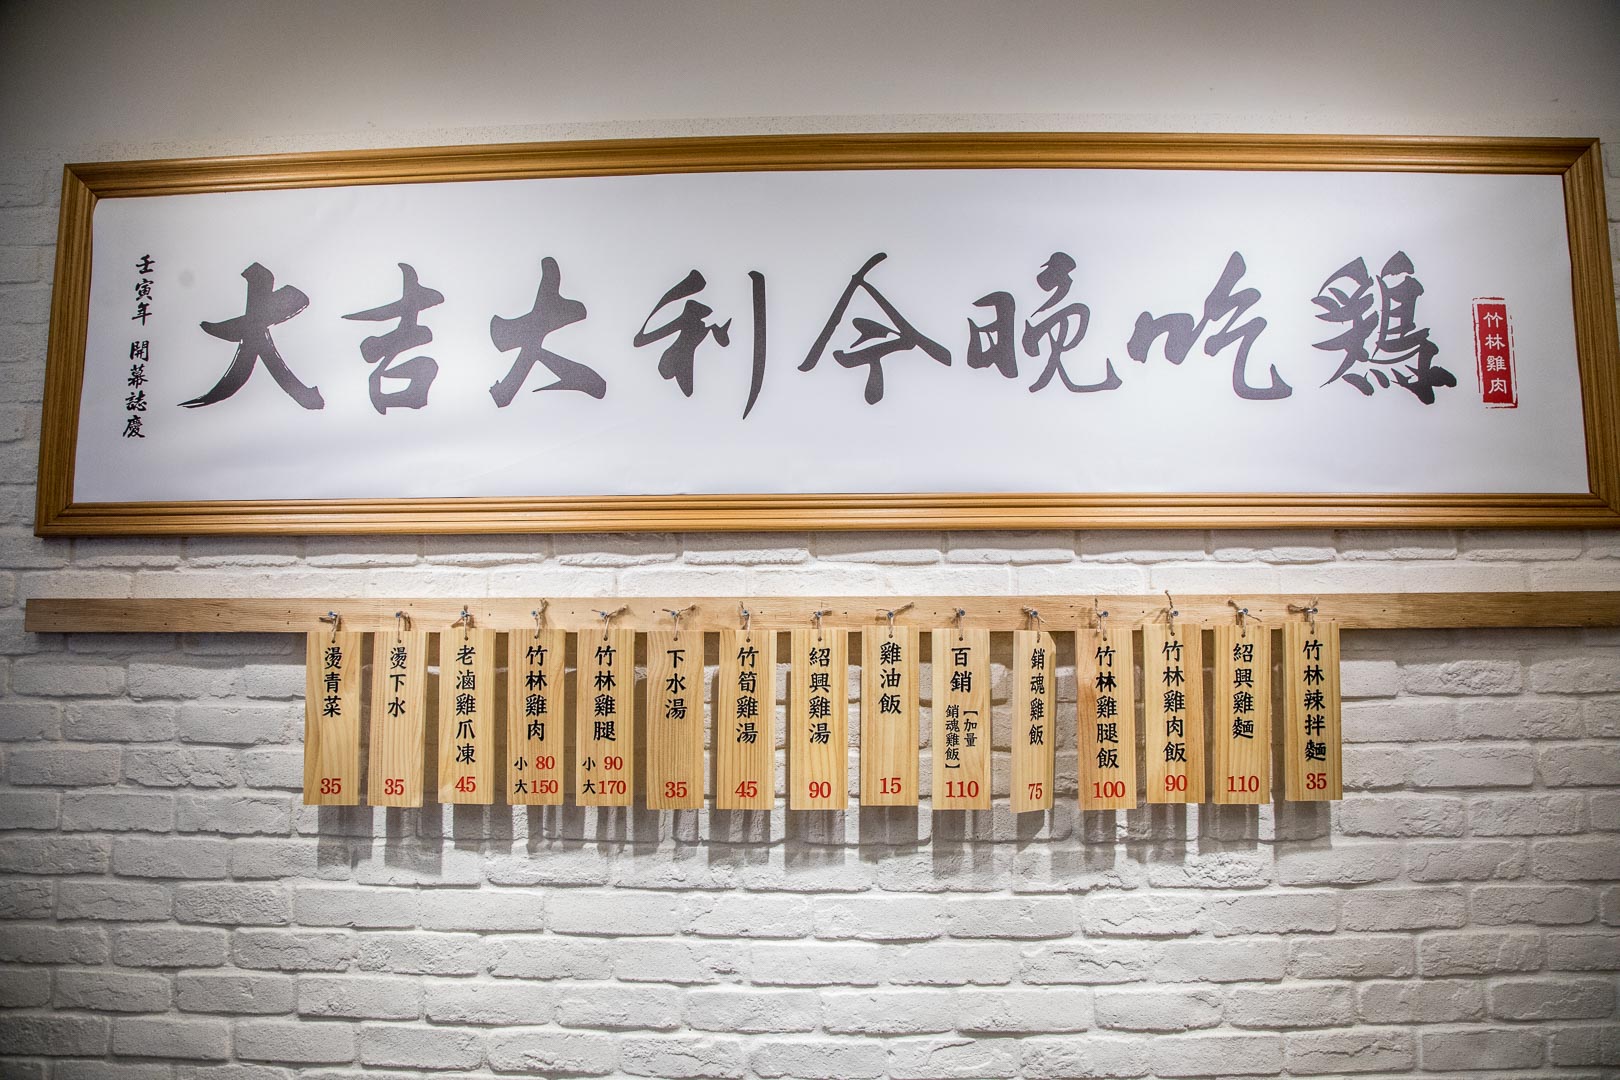 大吉大利今晚吃鷄
竹林雞肉
壬寅年 開幕誌慶
竹林辣拌麵 35
紹興雞麵 110
竹林雞肉飯 90
竹林雞腿飯 100
銷魂雞飯 75
百銷【加量銷魂雞飯】 110
雞油飯 15
紹興雞湯 90
竹筍雞湯 45
下水湯 35
竹林雞腿 小 90 大 170
竹林雞肉 小 80 大 150
老滷雞爪凍 45
燙下水 35
燙青菜 35